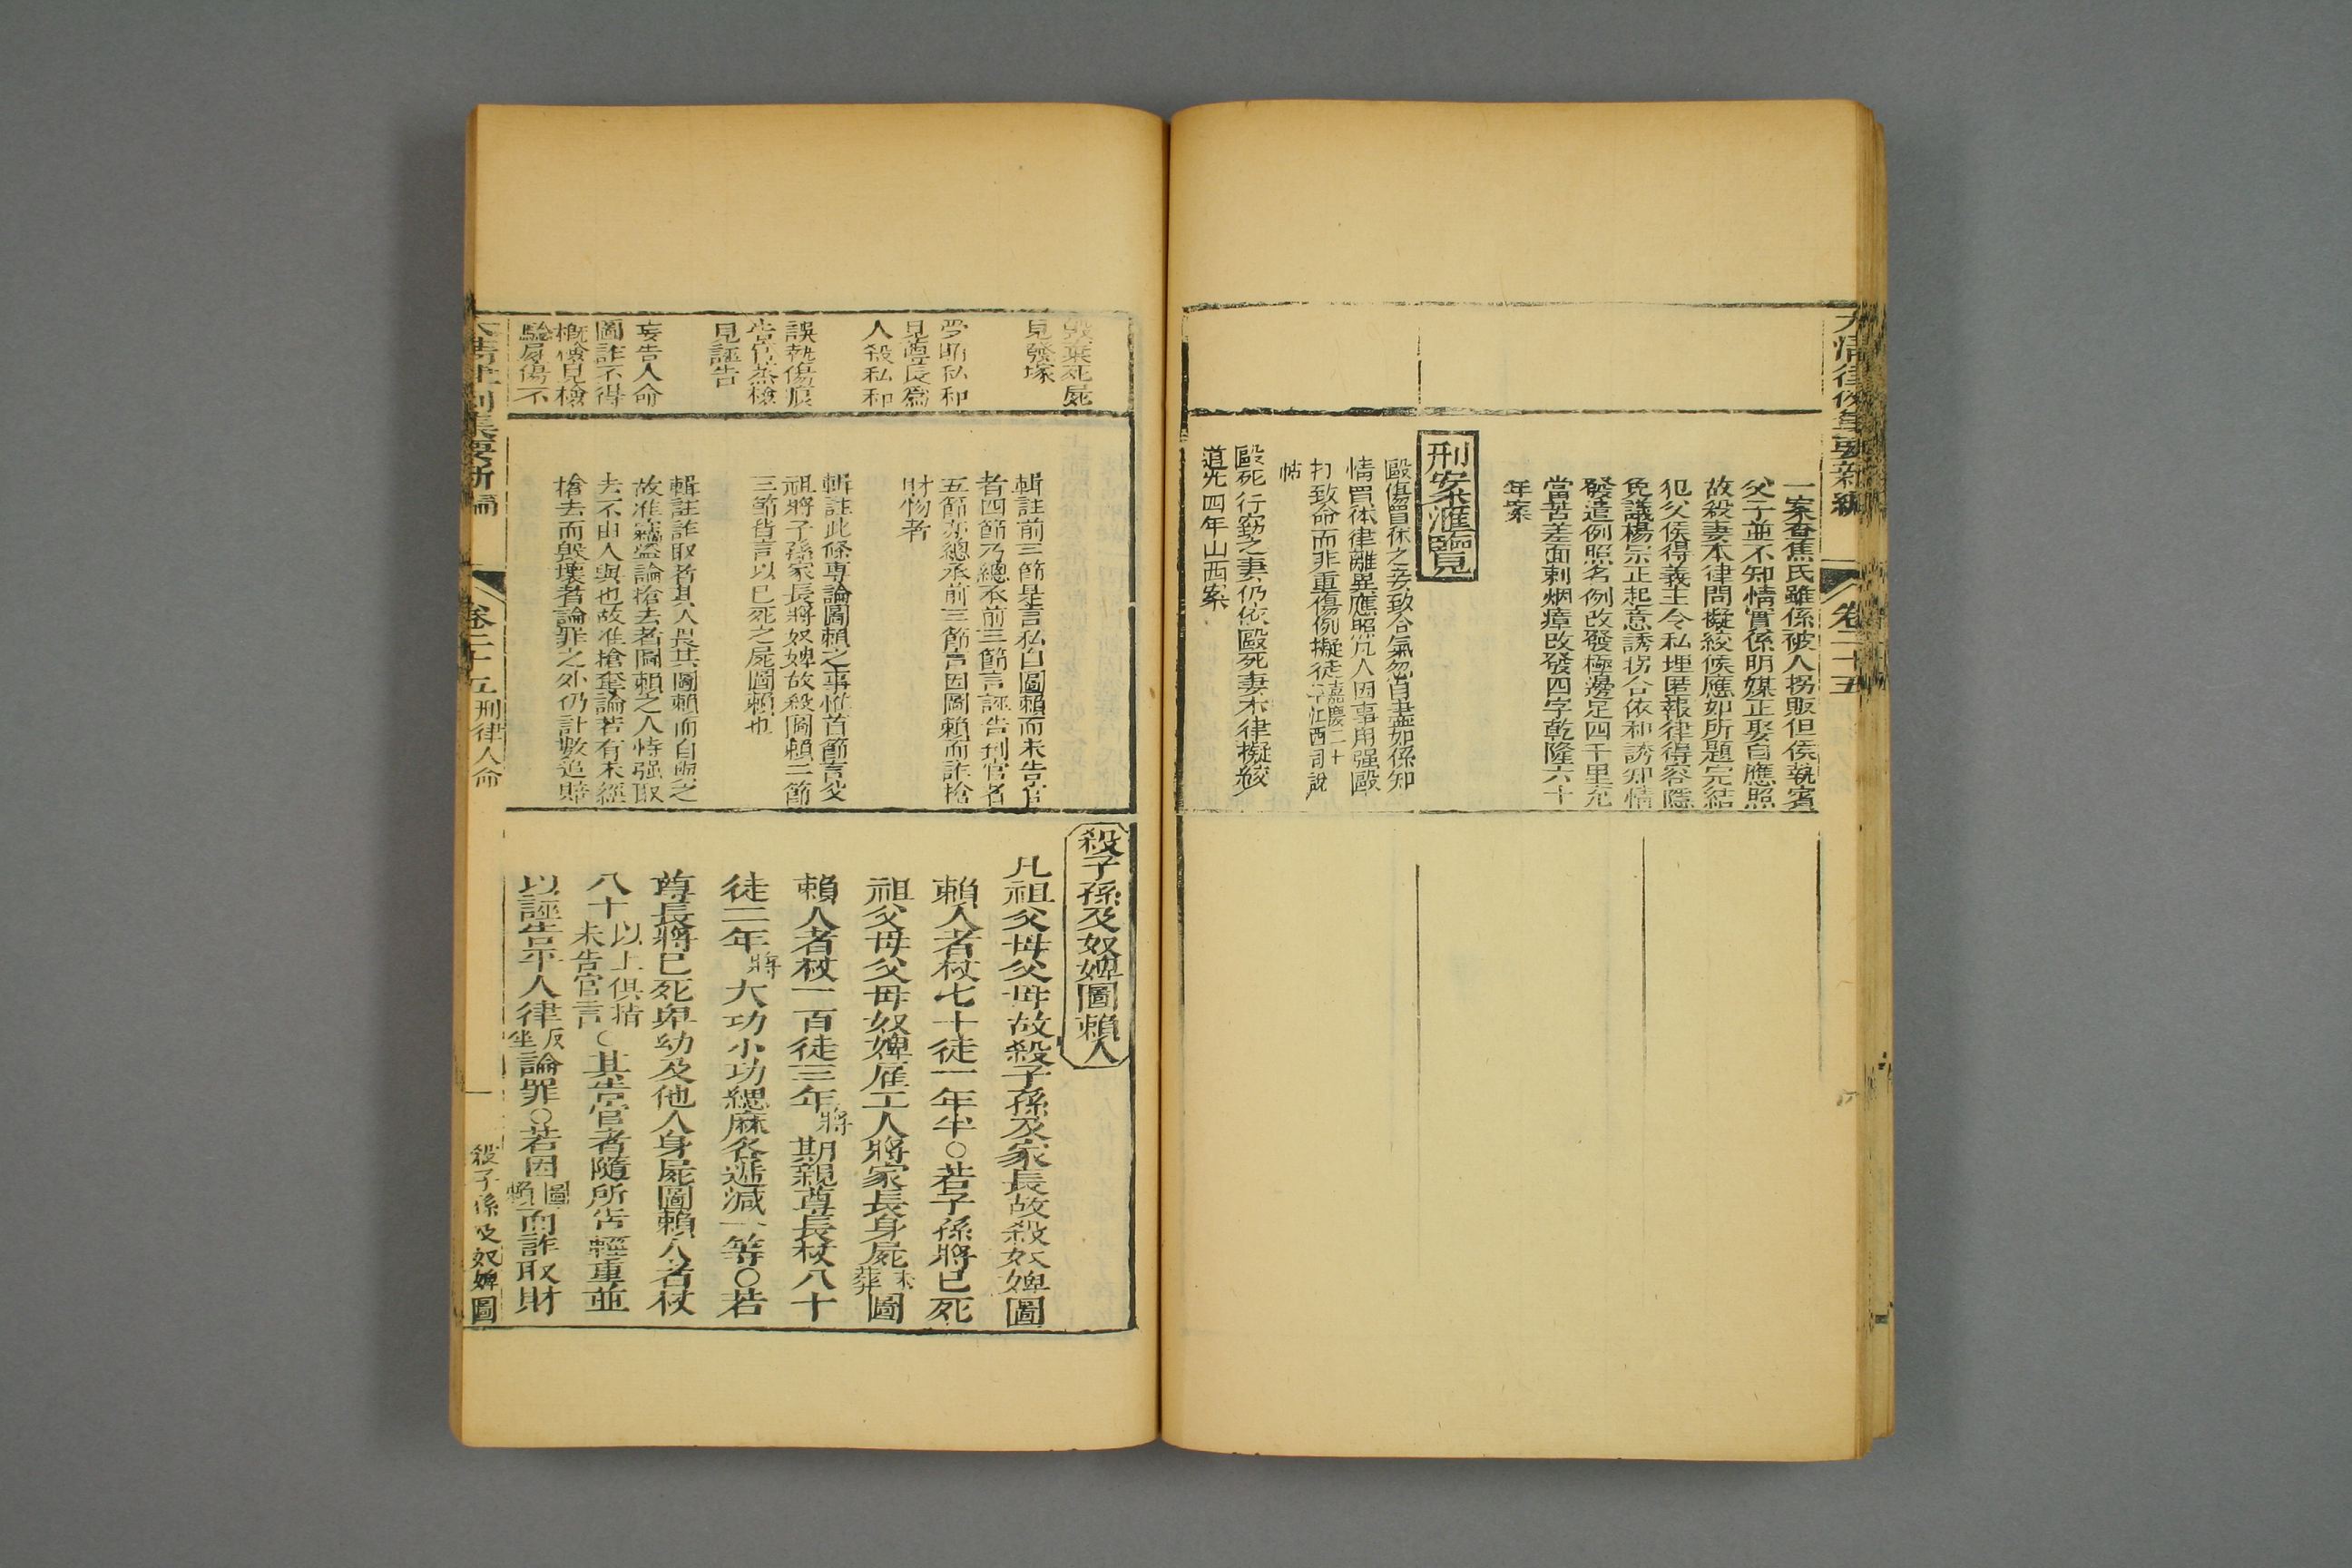 大清律例集要新編
卷二十五
一案查蕉氏雖係被人拐販但侯執賓
父子並不知情實係明媒正娶自應照
故殺妻本律問擬絞候應如所題完結
犯父侯得義主令私埋匿報律得容隱
免議楊宗正起意誘拐合依和誘知情
發遣例照名例改發極邊足四千里充
當苦差面刺烟瘴改發四字乾隆六十
年案
刑案滙覽
毆傷買休之妾致令氣忿自盡如係知
情買休律離異應照凡人因事用强毆
打致命而非重傷例擬徒嘉慶二十
年江西司說
帖
毆死行竊之妻仍依毆死妻本律擬絞
道光四年山西案
毀棄死屍
見發塚
受賄私和
見尊長為
人殺私和
誤執傷痕
告官蒸檢
見誣告
妄告人命
圖詐不得
概僉見檢
驗屍傷不
輯註前三節是言私自圖賴而未告官
者四節乃總承前三節言誣告到官者
五節亦總承前三節言因圖賴而詐搶
財物者
輯註此條專論圖賴之事惟首節言父
祖將子孫家長將奴婢故殺圖賴二節
三節皆言以已死之屍圖賴也
輯註詐取者其人畏其圖賴而自與之
故准竊盜論搶去者圖賴之人恃强取
去不由人與也故准搶奪論若有未經
搶去而毀壞者論罪之外仍計數追賠
殺子孫及奴婢圖賴人
凡祖父母父母故殺子孫及家長故殺奴婢圖
賴人者杖七十徒一年半○若子孫將已死
祖父母父母奴婢雇工人將家長身屍未葬圖
賴人者杖一百徒三年將期親尊長杖八十
徒二年將大功小功緦麻各遞減一等○若
尊長將已死卑幼及他人身屍圖賴人者杖
八十以上俱指未告官言○其告官者隨所告輕重並
以誣告平人律反坐論罪○若因圖賴而詐取財
大清律例集要新編
卷二十五刑律人命
一
殺子孫及奴婢圖